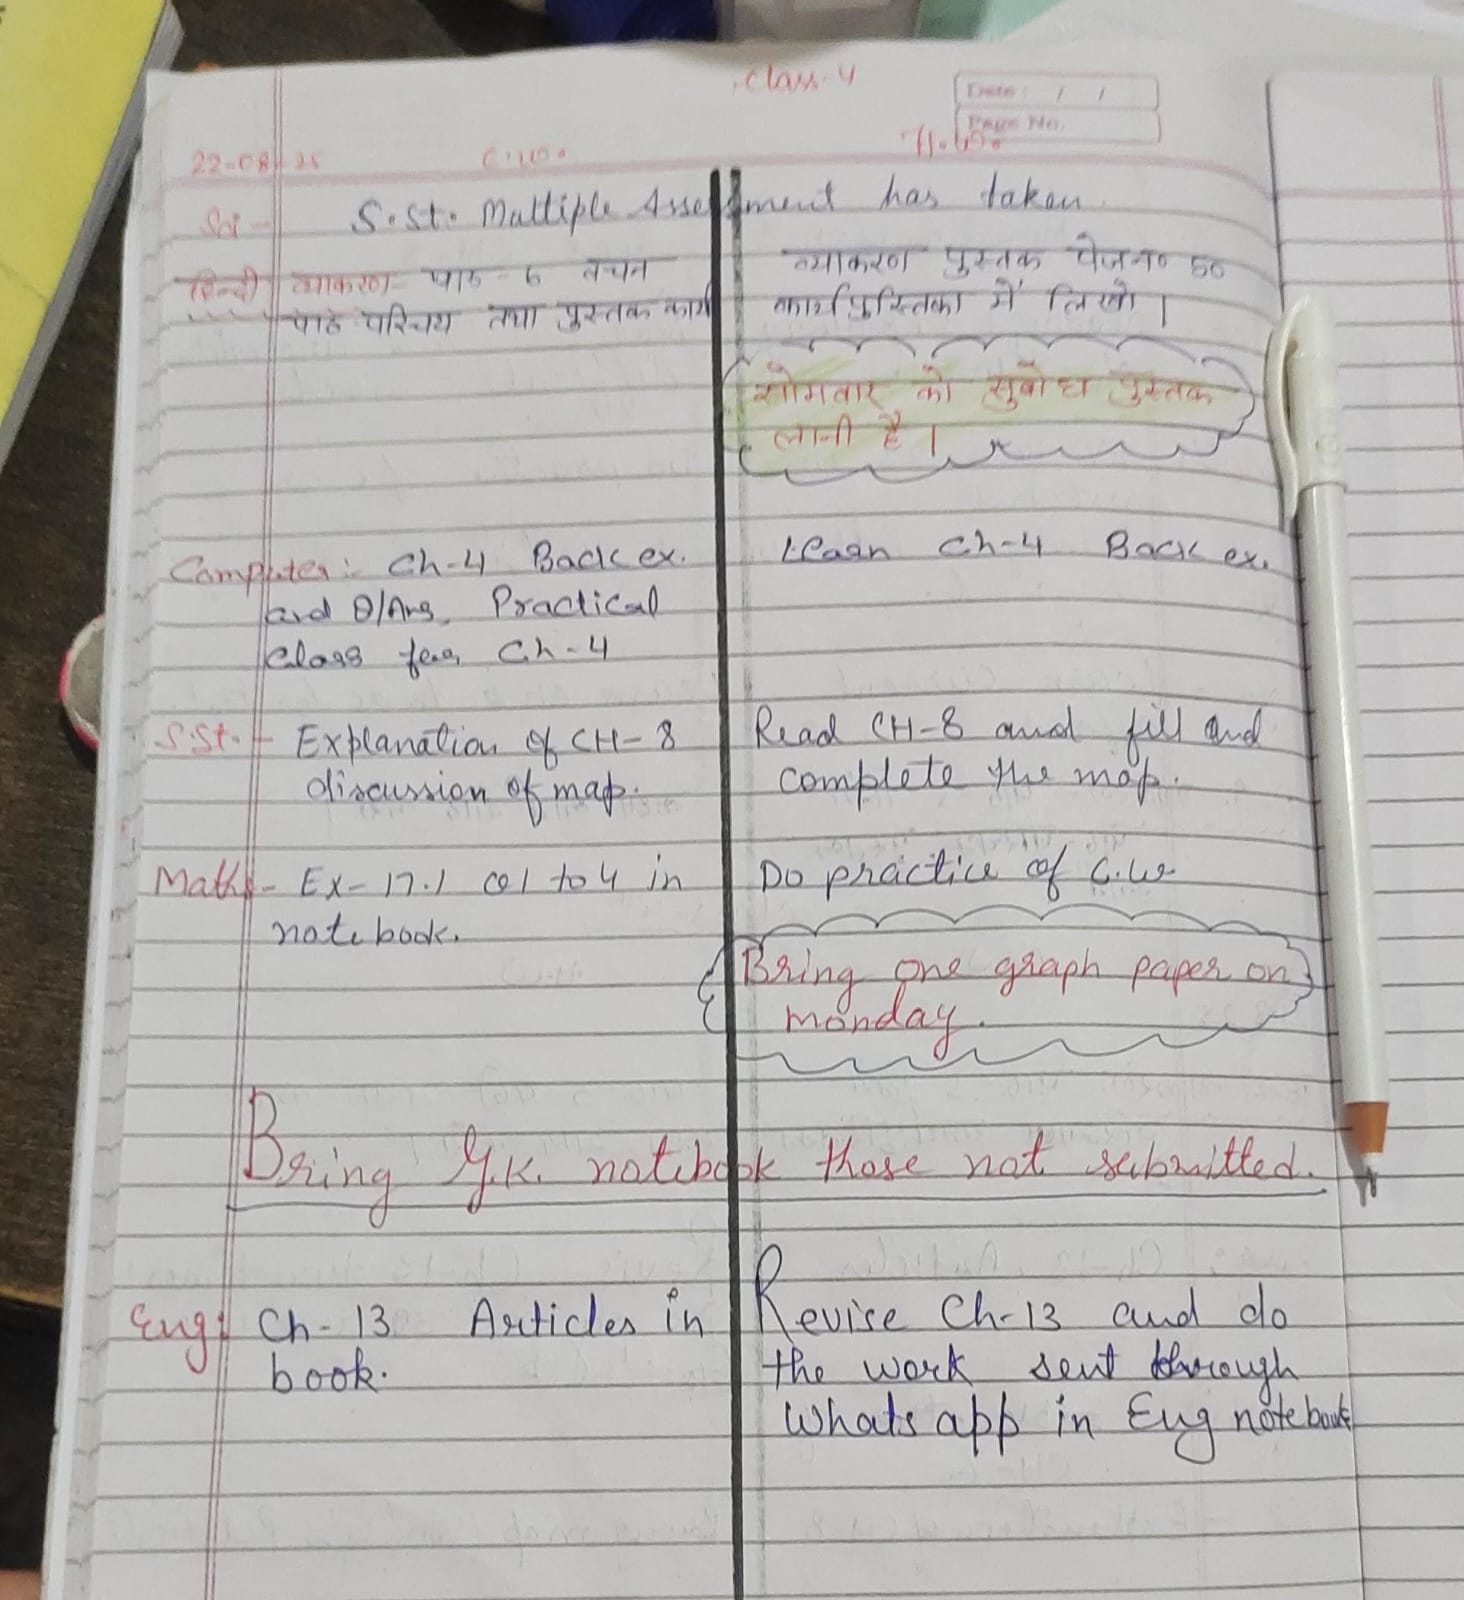 Class-4
Date: / /
Page No.
22-08-25 C.W. H.W.
S.St. Multiple Assessment has taken
हिन्दी व्याकरण- पाठ - 6 वचन
पाठ परिचय तथा पुस्तक कार्य
व्याकरण पुस्तक पेज न० 50
कार्यपुस्तिका में लिखो।
सोमवार को सुबोध पुस्तक
लानी है।
Computer:- Ch-4 Back ex.
and Q/Ans, Practical
Class for Ch-4
Learn Ch-4 Back ex.
S.St.- Explanation of CH-8
discussion of map.
Read CH-8 and fill and
complete the map.
Maths- Ex-17.1 Q1 to 4 in
notebook.
Do practice of C.W
Bring one graph paper on
monday.
Bring G.K. notebook those not submitted.
Eng: Ch-13 Articles in
book.
Revise Ch-13 and do
the work sent through
Whats app in Eng notebook